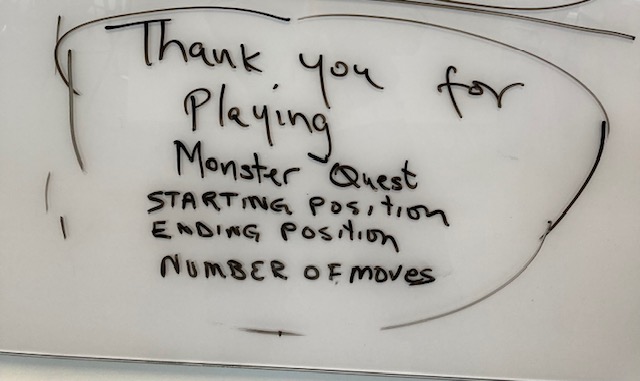 Thank you for
Playing
Monster Quest
STARTING POSITION
ENDING POSITION
NUMBER OF MOVES